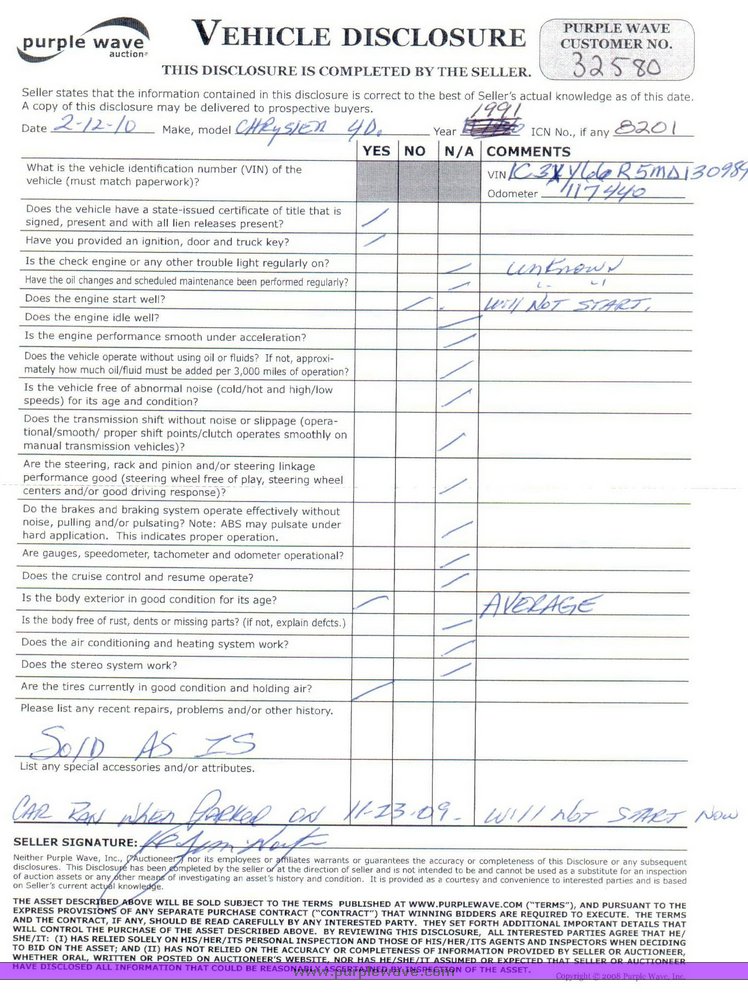 purple wave
auction®
VEHICLE DISCLOSURE
PURPLE WAVE
CUSTOMER NO.
32580
THIS DISCLOSURE IS COMPLETED BY THE SELLER.
Seller states that the information contained in this disclosure is correct to the best of Seller's actual knowledge as of this date.
A copy of this disclosure may be delivered to prospective buyers.
1991
Date 2-12-10 Make, model CHRYSLER 4D. Year ICN No., if any 8201
YES NO N/A COMMENTS
What is the vehicle identification number (VIN) of the
vehicle (must match paperwork)?
VIN 1C3XY66R5MD130984
Odometer 117440
Does the vehicle have a state-issued certificate of title that is
signed, present and with all lien releases present?
Have you provided an ignition, door and truck key?
Is the check engine or any other trouble light regularly on? UNKNOWN
Have the oil changes and scheduled maintenance been performed regularly? " "
Does the engine start well? Will NOT START.
Does the engine idle well?
Is the engine performance smooth under acceleration?
Does the vehicle operate without using oil or fluids? If not, approxi-
mately how much oil/fluid must be added per 3,000 miles of operation?
Is the vehicle free of abnormal noise (cold/hot and high/low
speeds) for its age and condition?
Does the transmission shift without noise or slippage (opera-
tional/smooth/ proper shift points/clutch operates smoothly on
manual transmission vehicles)?
Are the steering, rack and pinion and/or steering linkage
performance good (steering wheel free of play, steering wheel
centers and/or good driving response)?
Do the brakes and braking system operate effectively without
noise, pulling and/or pulsating? Note: ABS may pulsate under
hard application. This indicates proper operation.
Are gauges, speedometer, tachometer and odometer operational?
Does the cruise control and resume operate?
Is the body exterior in good condition for its age? AVERAGE
Is the body free of rust, dents or missing parts? (if not, explain defcts.)
Does the air conditioning and heating system work?
Does the stereo system work?
Are the tires currently in good condition and holding air?
Please list any recent repairs, problems and/or other history.
SOlD AS IS
List any special accessories and/or attributes.
CAR RAN WHEN PARKED ON 11-23-09. Will NOT START NOW
SELLER SIGNATURE:
Neither Purple Wave, Inc., ("Auctioneer") nor its employees or affiliates warrants or guarantees the accuracy or completeness of this Disclosure or any subsequent
disclosures. This Disclosure has been completed by the seller or at the direction of seller and is not intended to be and cannot be used as a substitute for an inspection
of auction assets or any other means of investigating an asset's history and condition. It is provided as a courtesy and convenience to interested parties and is based
on Seller's current actual knowledge.
THE ASSET DESCRIBED ABOVE WILL BE SOLD SUBJECT TO THE TERMS PUBLISHED AT WWW.PURPLEWAVE.COM ("TERMS"), AND PURSUANT TO THE
EXPRESS PROVISIONS OF ANY SEPARATE PURCHASE CONTRACT ("CONTRACT") THAT WINNING BIDDERS ARE REQUIRED TO EXECUTE. THE TERMS
AND THE CONTRACT, IF ANY, SHOULD BE READ CAREFULLY BY ANY INTERESTED PARTY. THEY SET FORTH ADDITIONAL IMPORTANT DETAILS THAT
WILL CONTROL THE PURCHASE OF THE ASSET DESCRIBED ABOVE. BY REVIEWING THIS DISCLOSURE, ALL INTERESTED PARTIES AGREE THAT HE/
SHE/IT: (I) HAS RELIED SOLELY ON HIS/HER/ITS PERSONAL INSPECTION AND THOSE OF HIS/HER/ITS AGENTS AND INSPECTORS WHEN DECIDING
TO BID ON THE ASSET; AND (II) HAS NOT RELIED ON THE ACCURACY OR COMPLETENESS OF INFORMATION PROVIDED BY SELLER OR AUCTIONEER,
WHETHER ORAL, WRITTEN OR POSTED ON AUCTIONEER'S WEBSITE, NOR HAS HE/SHE/IT ASSUMED OR EXPECTED THAT SELLER OR AUCTIONEER
HAVE DISCLOSED ALL INFORMATION THAT COULD BE REASONABLY ASCERTAINED BY INSPECTION OF THE ASSET.
www.purplewave.com
Copyright © 2008 Purple Wave, Inc.